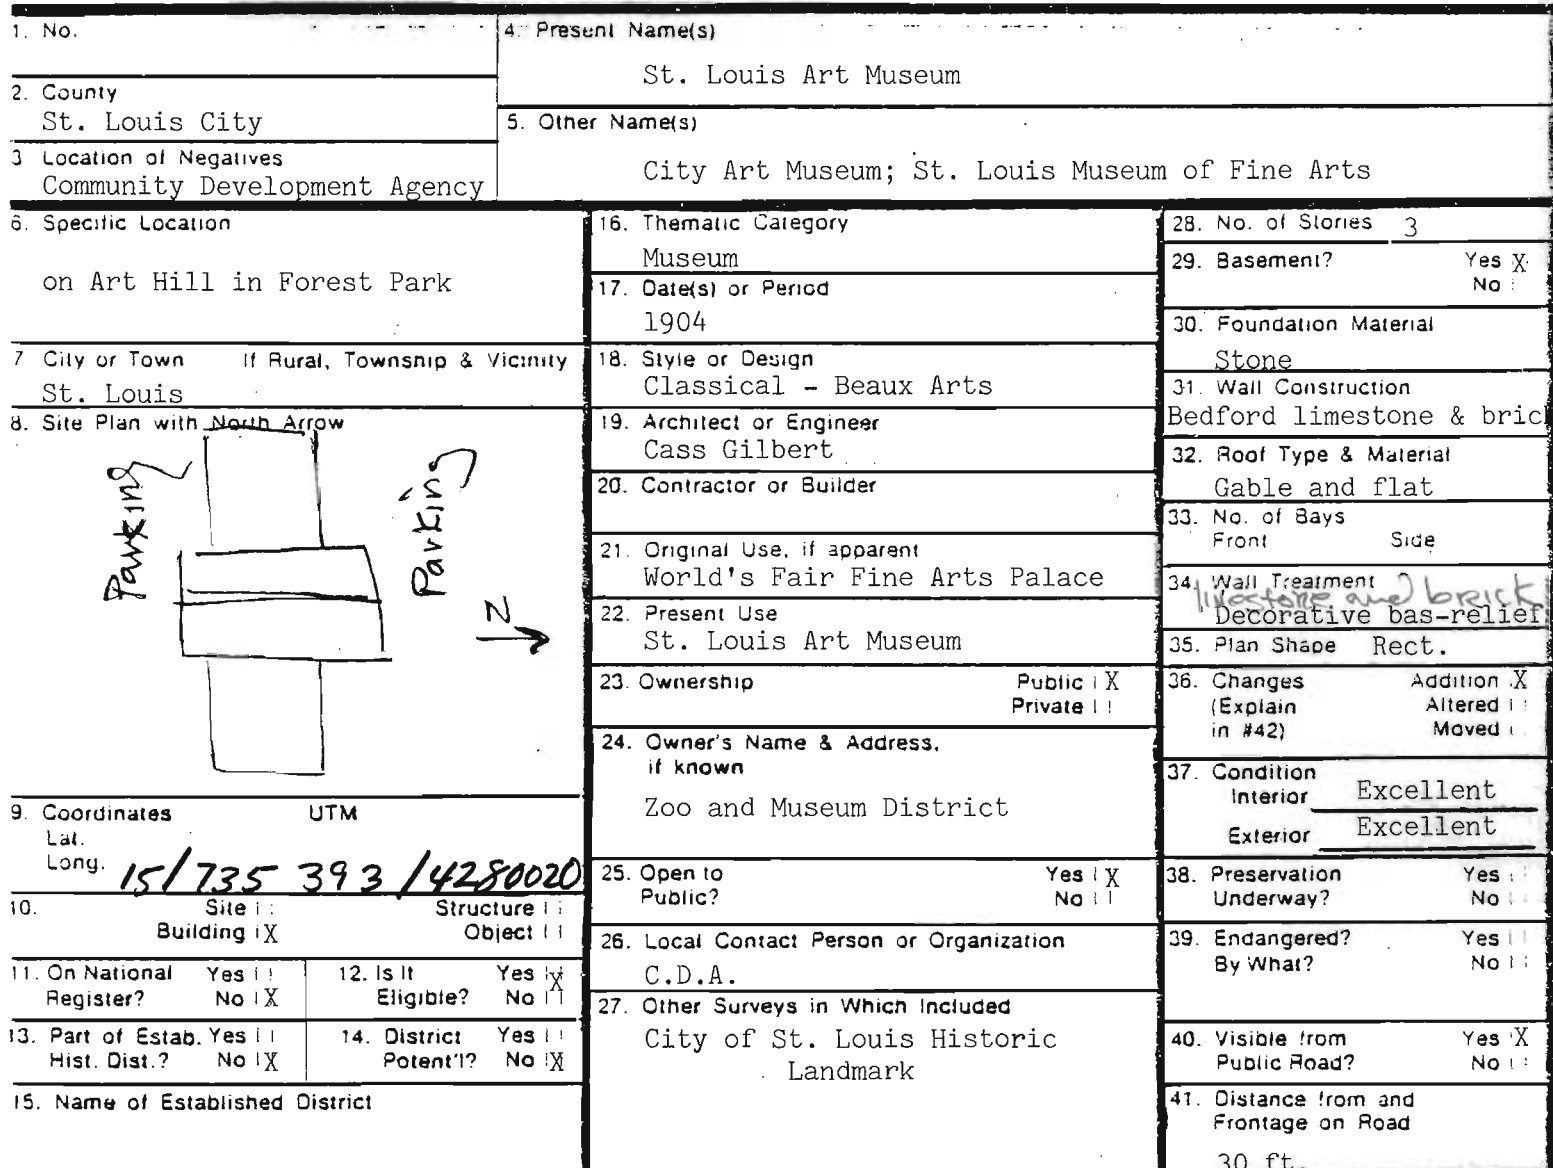 1. No.
4. Present Name(s)
St. Louis Art Museum
2. County
St. Louis City
5. Other Name(s)
City Art Museum; St. Louis Museum of Fine Arts
3 Location of Negatives
Community Development Agency
6. Specific Location
on Art Hill in Forest Park
7 City or Town If Rural, Township & Vicinity
St. Louis
8. Site Plan with North Arrow
Parking
Parking
N
9. Coordinates UTM
Lat.
Long. 15/735 393/4280020
10. Site Structure
Building X Object
11. On National Register? Yes No X
12. Is It Eligible? Yes X No
13. Part of Estab. Hist. Dist.? Yes No X
14. District Potent'l? Yes No X
15. Name of Established District
16. Thematic Category
Museum
17. Date(s) or Period
1904
18. Style or Design
Classical - Beaux Arts
19. Architect or Engineer
Cass Gilbert
20. Contractor or Builder
21. Original Use, if apparent
World's Fair Fine Arts Palace
22. Present Use
St. Louis Art Museum
23. Ownership Public X
Private
24. Owner's Name & Address,
if known
Zoo and Museum District
25. Open to Yes X
Public? No
26. Local Contact Person or Organization
C.D.A.
27. Other Surveys in Which Included
City of St. Louis Historic
Landmark
28. No. of Stories 3
29. Basement? Yes X
No
30. Foundation Material
Stone
31. Wall Construction
Bedford limestone & bric
32. Roof Type & Material
Gable and flat
33. No. of Bays
Front Side
34. Wall Treatment
limestone and brick
Decorative bas-relief
35. Plan Shape Rect.
36. Changes Addition X
(Explain Altered
in #42) Moved
37. Condition
Interior Excellent
Exterior Excellent
38. Preservation Yes
Underway? No
39. Endangered? Yes
By What? No
40. Visible from Yes X
Public Road? No
41. Distance from and
Frontage on Road
30 ft.